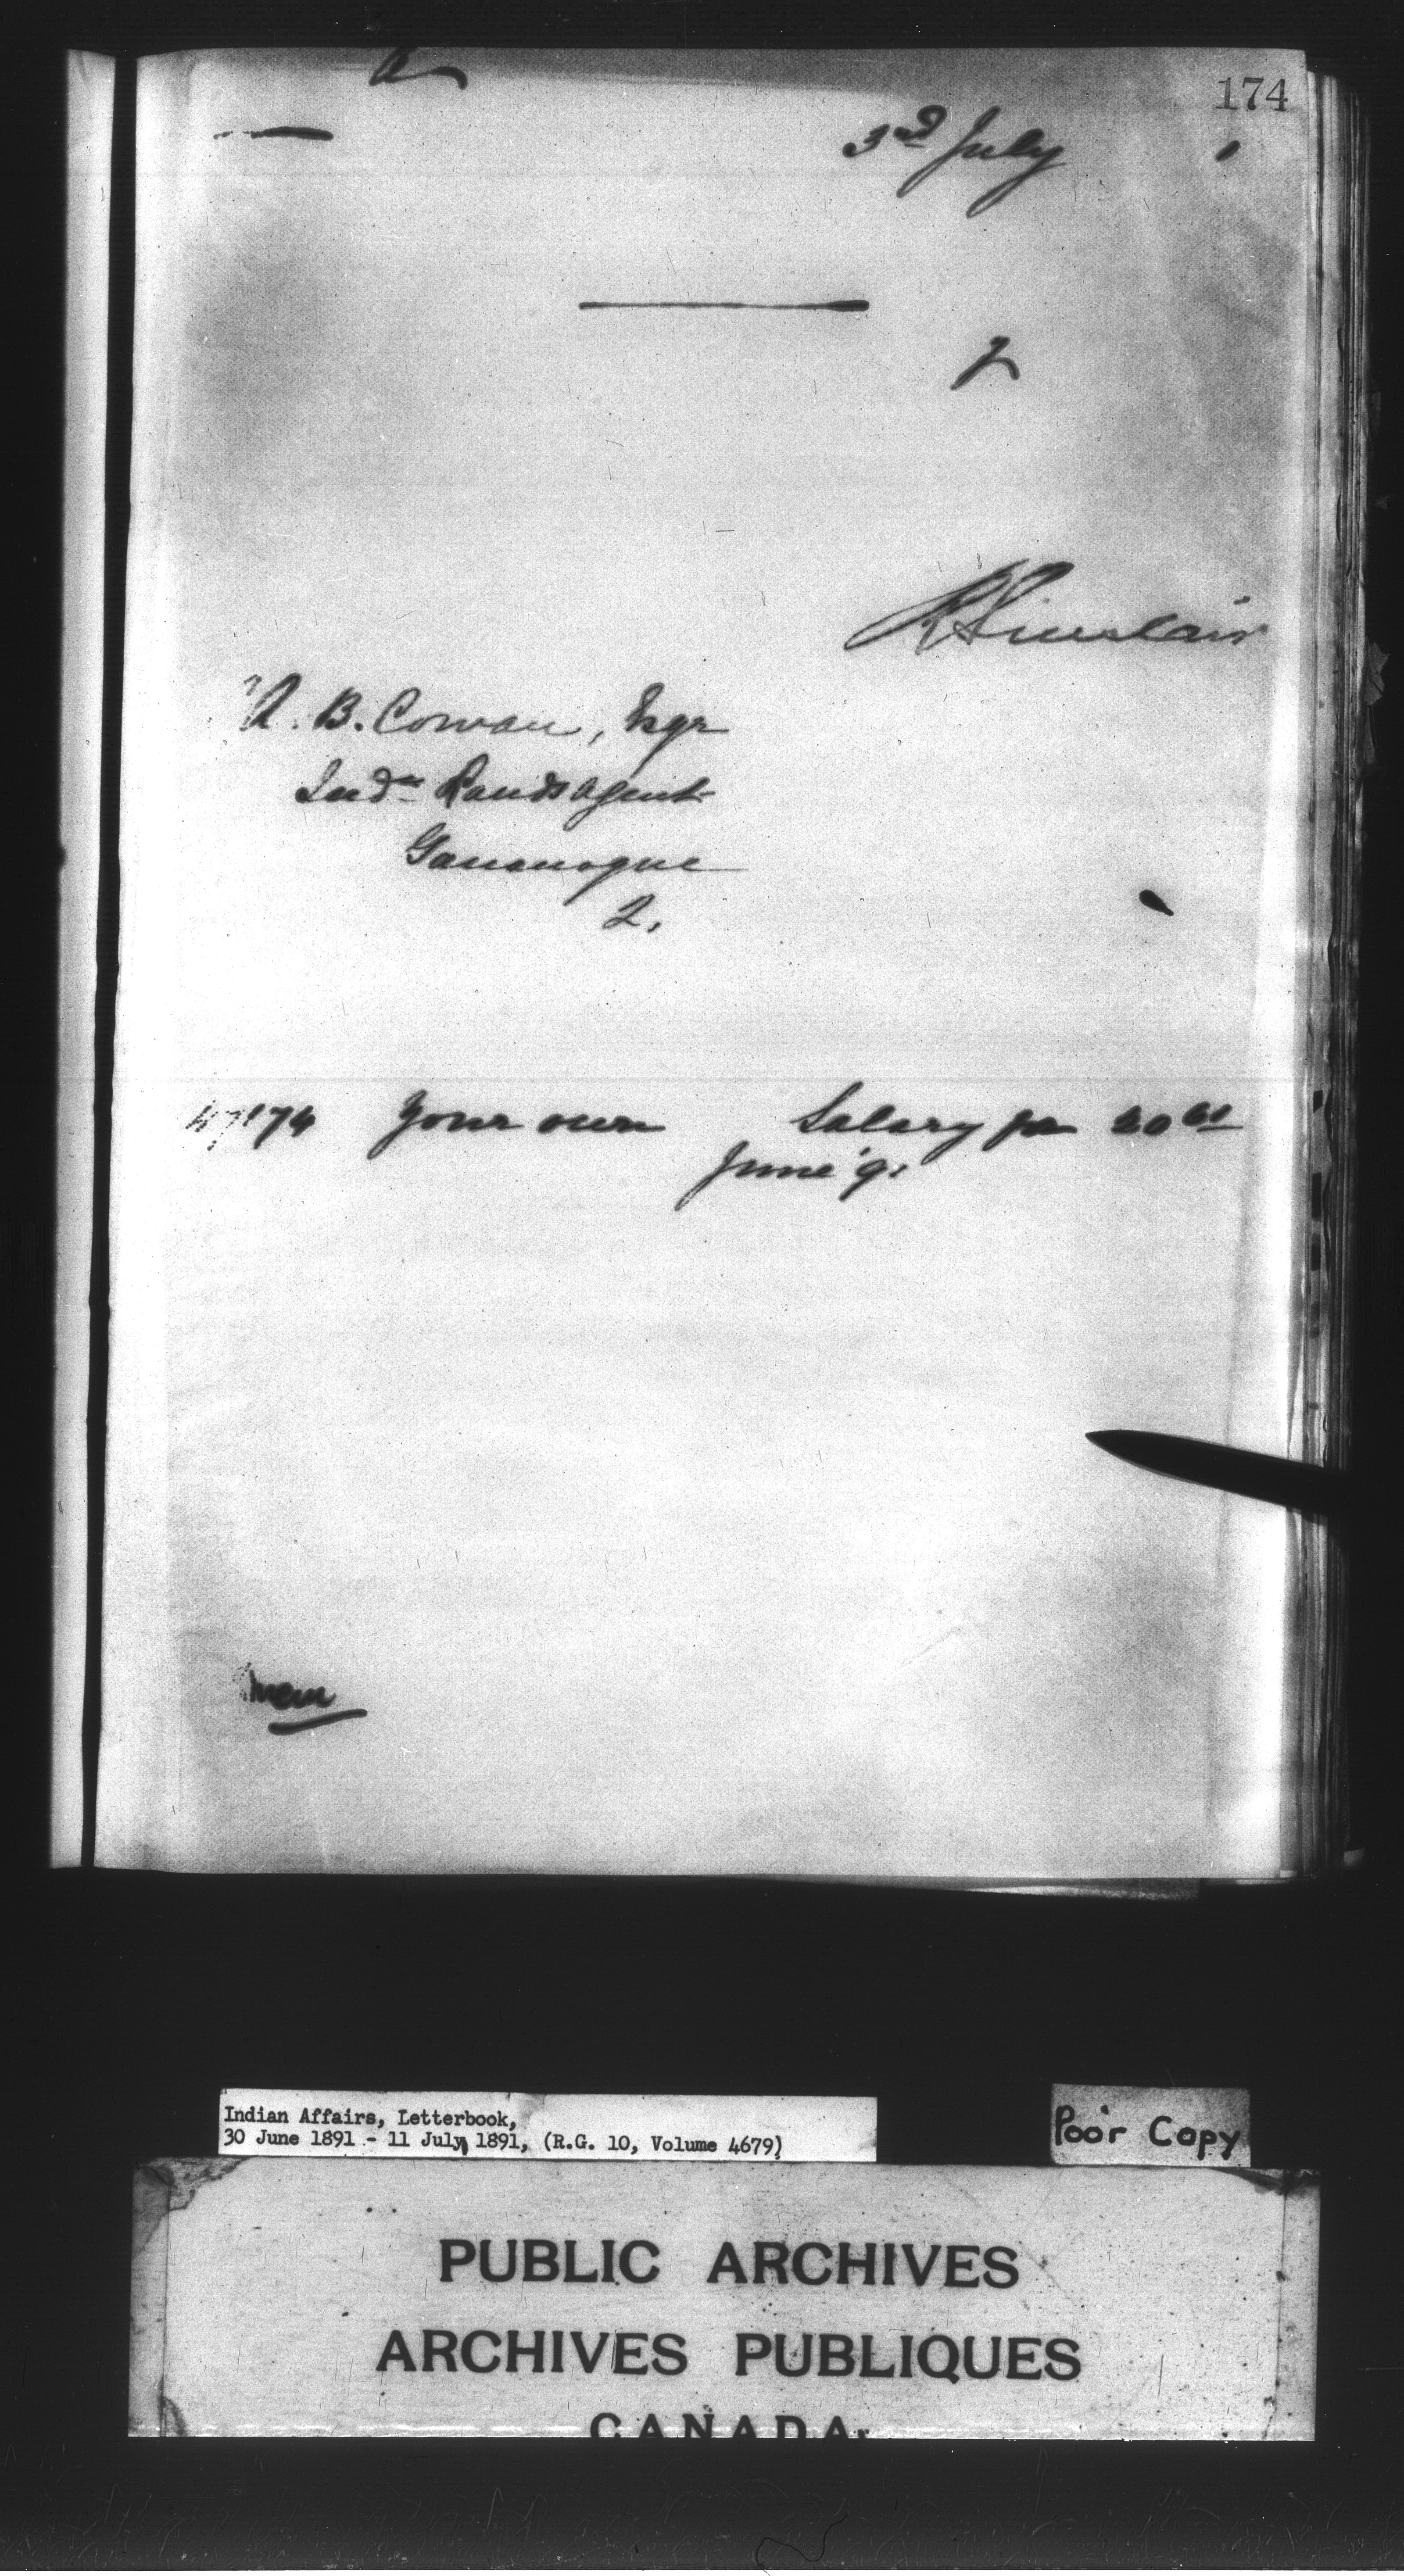 a
174
3rd July
R Sinclair
N. B. Cowan, Esqr
Indn Lands Agent
Gananoque
2.
47174 your own Salary for to
June '91
mem
Indian Affairs, Letterbook,
30 June 1891 - 11 July, 1891, (R.G. 10, Volume 4679)
Poor Copy
PUBLIC ARCHIVES
ARCHIVES PUBLIQUES
CANADA